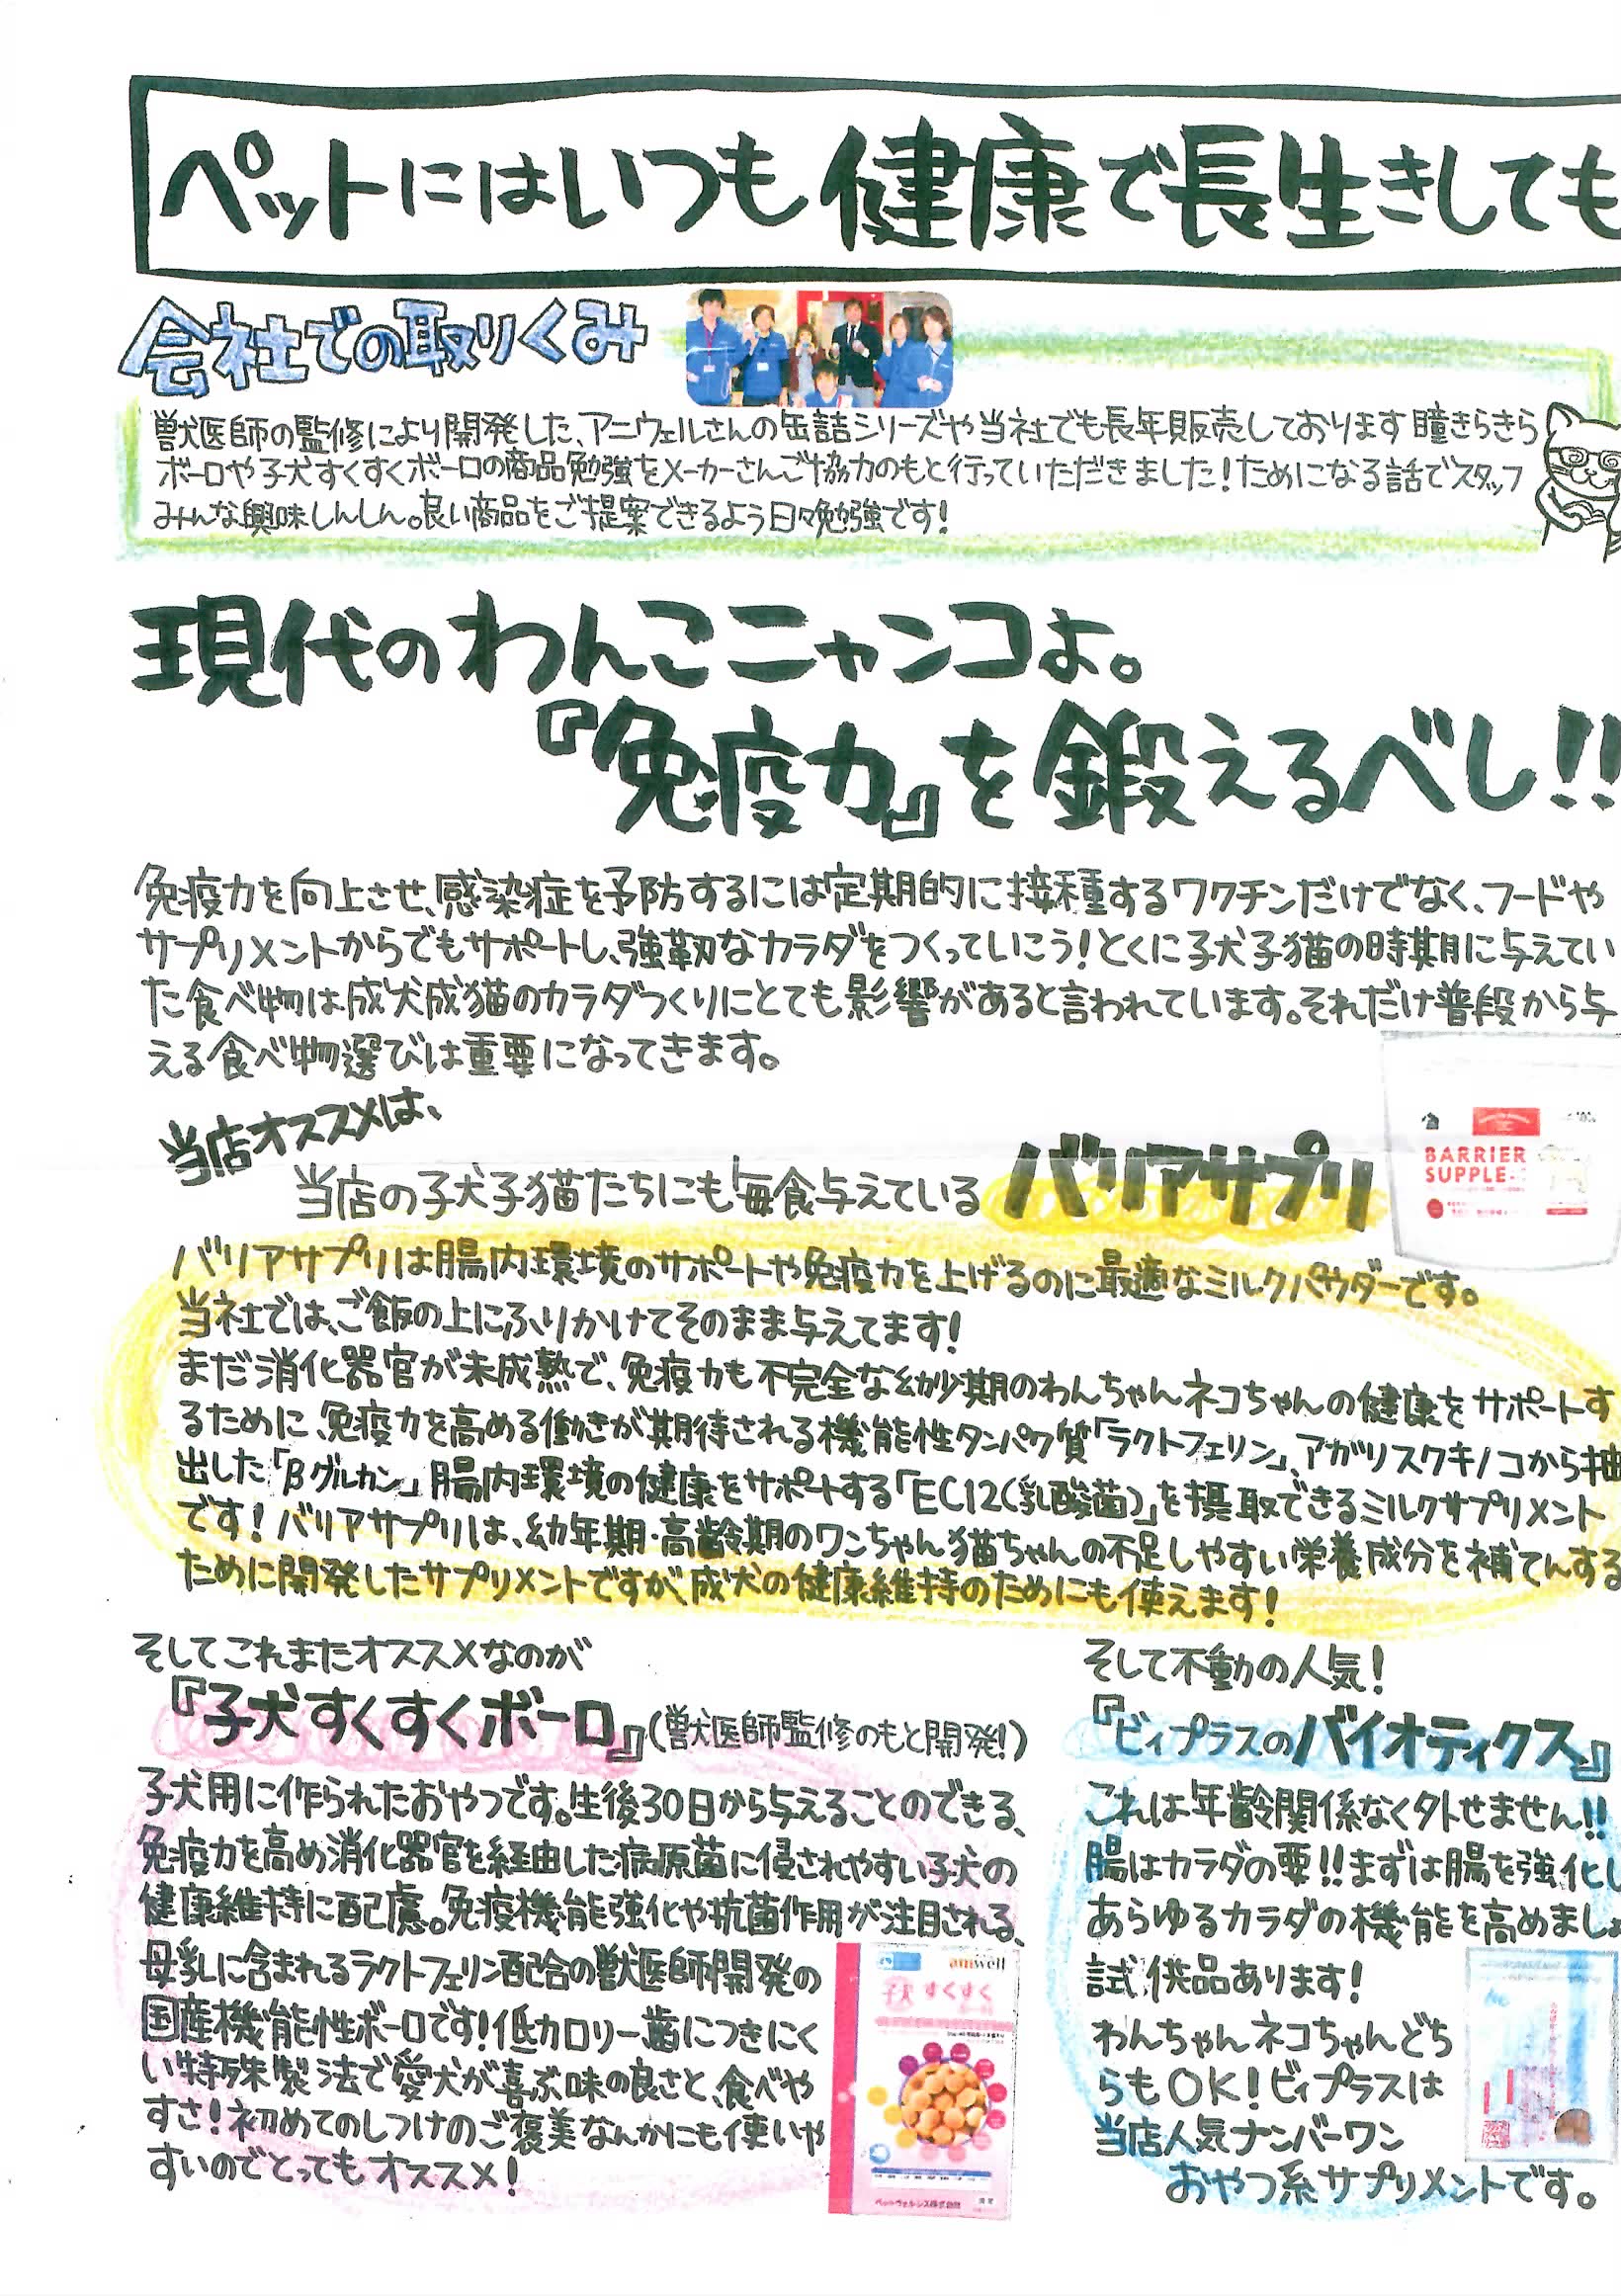 ペットにはいつも健康で長生きしても
会社での取りくみ
獣医師の監修により開発した、アニウェルさんの缶詰シリーズや当社でも長年販売しております瞳きらきら
ボーロや子犬すくすくボーロの商品勉強をメーカーさんご協力のもと行っていただきました!ためになる話でスタッフ
みんな興味しんしん。良い商品をご提案できるよう日々勉強です!
現代のわんこニャンコよ。
『免疫力』を鍛えるべし!!
免疫力を向上させ、感染症を予防するには定期的に接種するワクチンだけでなく、フードや
サプリメントからでもサポートし、強靭なカラダをつくっていこう!とくに子犬子猫の時期に与えてい
た食べ物は成犬成猫のカラダつくりにとても影響があると言われています。それだけ普段から与
える食べ物選びは重要になってきます。
当店オススメは、
当店の子犬子猫たちにも毎食与えているバリアサプリ
BARRIER
SUPPLE
バリアサプリは腸内環境のサポートや免疫力を上げるのに最適なミルクパウダーです。
当社では、ご飯の上にふりかけてそのまま与えてます!
まだ消化器官が未成熟で、免疫力も不完全な幼少期のわんちゃんネコちゃんの健康をサポートす
るために、免疫力を高める働きが期待される機能性タンパク質「ラクトフェリン」、アガリスクキノコから抽
出した「βグルカン」腸内環境の健康をサポートする「EC12(乳酸菌)」を摂取できるミルクサプリメント
です!バリアサプリは、幼年期・高齢期のワンちゃん猫ちゃんの不足しやすい栄養成分を補てんする
ために開発したサプリメントですが、成犬の健康維持のためにも使えます!
そしてこれまたオススメなのが
『子犬すくすくボーロ』(獣医師監修のもと開発!)
子犬用に作られたおやつです。生後30日から与えることのできる、
免疫力を高め消化器官を経由した病原菌に侵されやすい子犬の
健康維持に配慮。免疫機能強化や抗菌作用が注目される、
母乳に含まれるラクトフェリン配合の獣医師開発の
国産機能性ボーロです!低カロリー歯につきにく
い特殊製法で愛犬が喜ぶ味の良さと、食べや
すさ!初めてのしつけのご褒美なんかにも使いや
すいのでとってもオススメ!
aniwell
子犬すくすく
ペットウェルシス株式会社
そして不動の人気!
『ビィプラスのバイオティクス』
これは年齢関係なく外せません!!
腸はカラダの要!!まずは腸を強化し
あらゆるカラダの機能を高めましょ
試供品あります!
わんちゃんネコちゃんどち
らもOK!ビィプラスは
当店人気ナンバーワン
おやつ系サプリメントです。